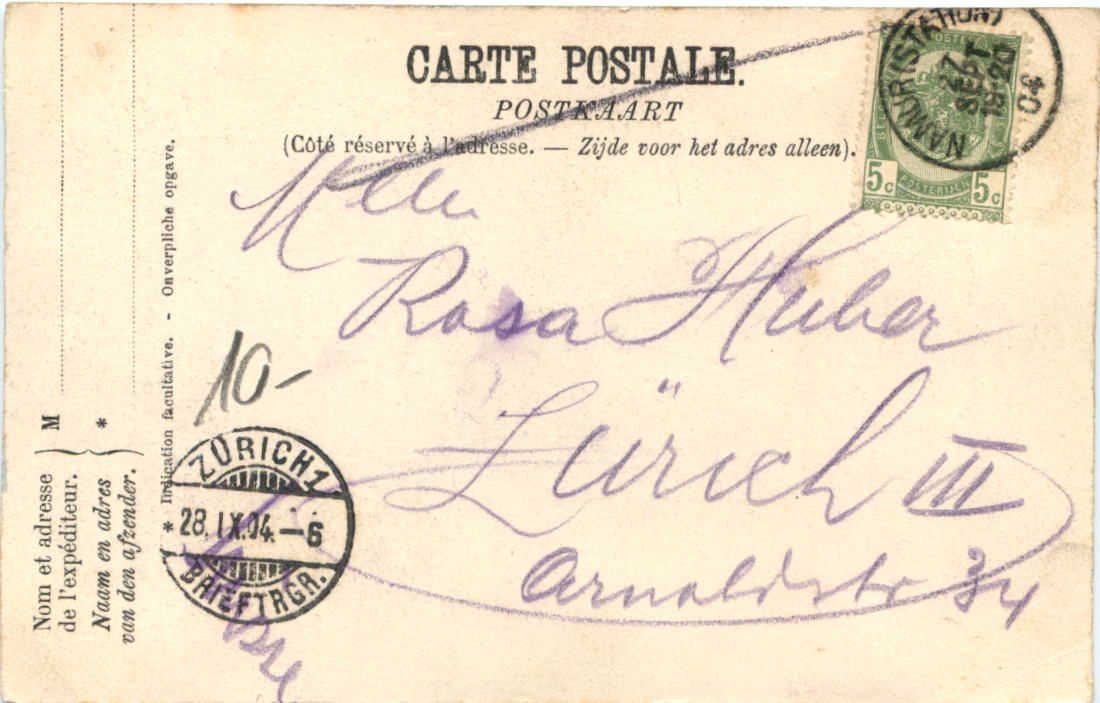 CARTE POSTALE.
POSTKAART
(Côté réservé à l'adresse. — Zijde voor het adres alleen).
NAMUR (STATION)
27
SEPT
19-20
04
POSTERIJEN
5c 5c
Melle
Rosa Huber
Zürich III
Arnoldstr 34
Suisse
10-
ZÜRICH 1
28.IX.04.-6
BRIEFTRGR.
* Indication facultative. - Onverpliche opgave.
M
*
Nom et adresse
de l'expéditeur.
Naam en adres
van den afzender.